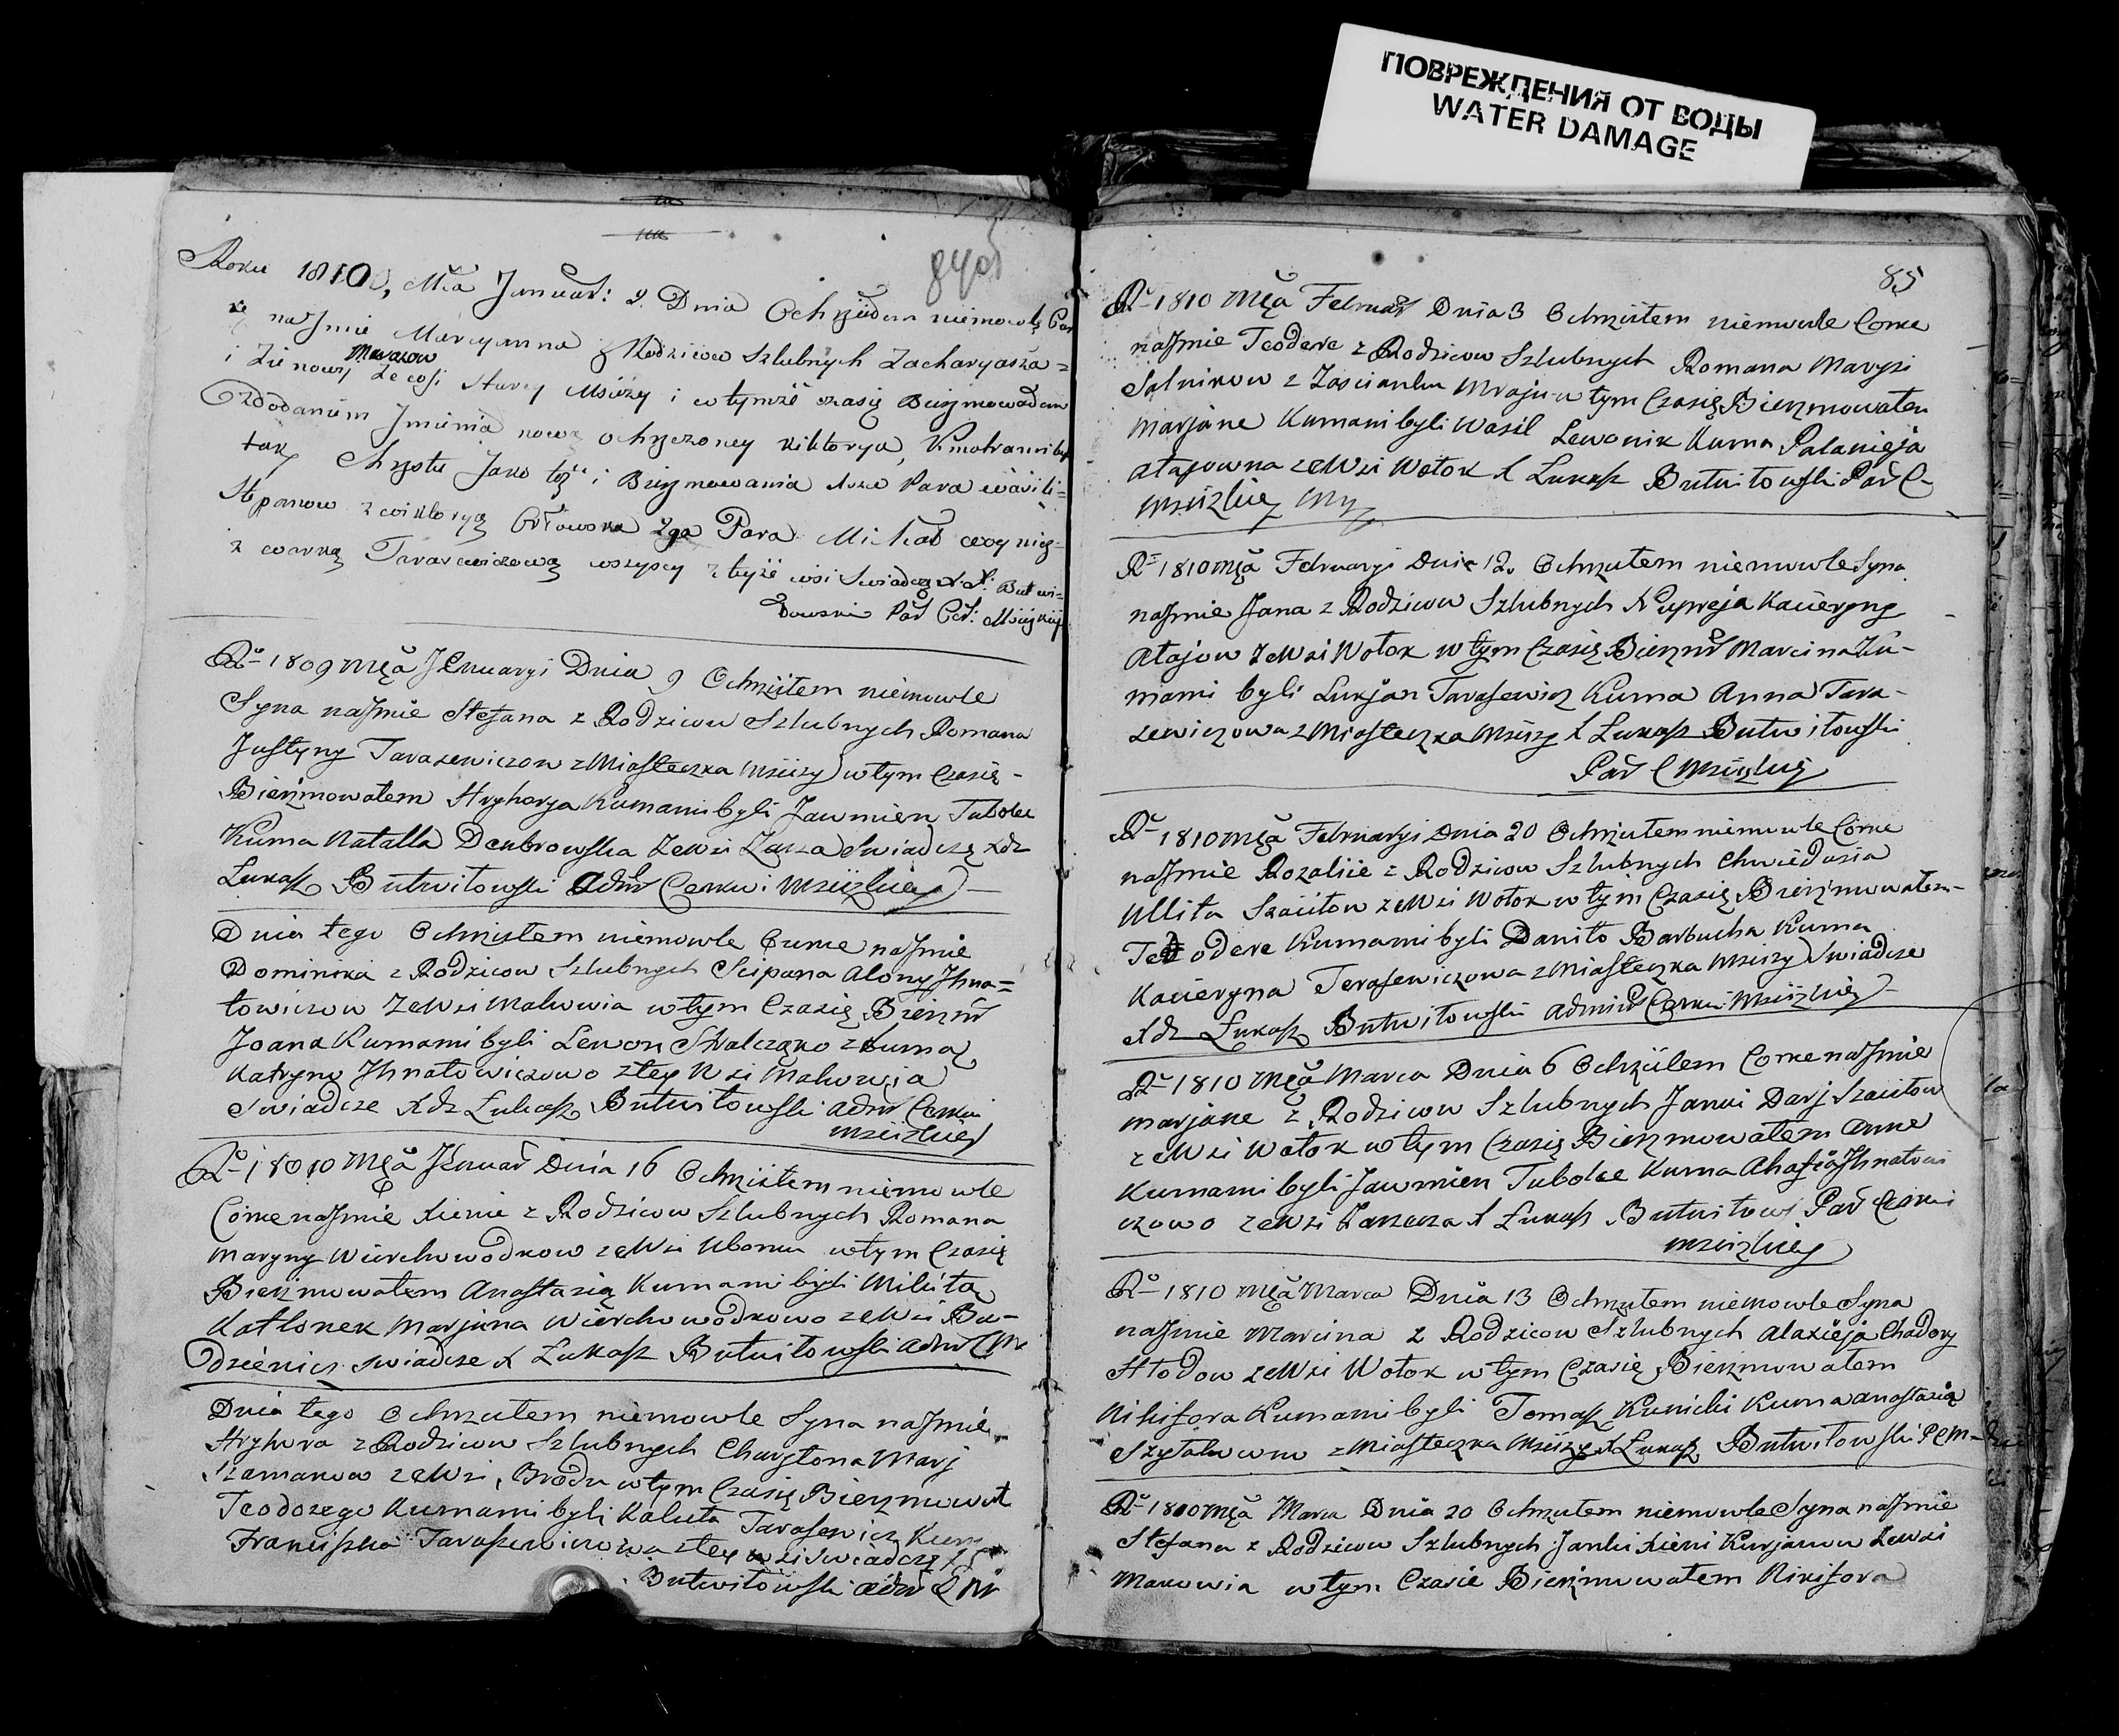 ПОВРЕЖДЕНИЯ ОТ ВОДЫ
WATER DAMAGE
84об
Roku 1810, Mca Januar: 2 Dnia Ochrzciłem niemowlę Cor
kę na Imie Maryanna z Rodziców Szlubnych Zacharyasza=
Mararow
i Zienowij ze wsi Starey Mściży i w tymże czasię Bierzmowałem
z dodaniem Imienia nowo ochrzczoney Wiktorya, Kmotrami byli
tak Chrztu Jako też i Bierzmowania 1sza Para Wasili=
Stpanow z Wiktoryą Orłowską 2ga Para Michał
z Tarasewiczową wszyscy z tyże wsi Swiadczę X. Ł: Butwi=
łowski Par Cer: Mściżskiey
Rº 1809 Mca JEnuaryi Dnia 9 Ochrzciłem niemowle
Syna na Imie Stefana z Rodzicow Szlubnych Romana
Justyny Tarasewiczow z Miasteczka Mściży w tym Czasię
Bierzmowałem Hryhorja Kumami byli Jawmien Tubolec
Kuma Natalla Denbrowska ze Wsi Swiadczę Xdz
Łukasz Butwiłowski Adm Cerkwi Mściżkiey
Dnia tego Ochrzciłem niemowle Curke na Imie
Dominika z Rodzicow Szlubnych Scipana Alony Ihna=
towiczow ze Wsi Makowia w tym Czasię Bierzm
Joana Kumami byli Lewon Skalczako z Kumą
Katryno Ihnatowiczowo z tey Wsi Makowia
Swiadcze Xdz Łukasz Butwiłowski Adm Cerkwi
Mściżkiey
Rº 1810 Mca JEnuar Dnia 16 Ochrzciłem niemowle
Corke na Imie Xienie z Rodzicow Szlubnych Romana
Maryny Wierchowodkow ze Wsi Uborku w tym Czasię
Bierzmowałem Anastazią Kumami byli Mikita
Kotlonek Marjana Wierchowodkowo ze Wsi Bu-
dzienicz swiadcze X Łukasz Butwiłowski Adm C M
Dnia tego Ochrzciłem niemowle Syna na Imie
Hryhora z Rodzicow Szlubnych Charytona Marj
Szamanow ze Wsi Brodu w tym Czasię Bierzmował
Teodozego Kumami byli Kaluta Tarasewicz Kum
Franciszka Taraszewiczowa z tey Wsi Swiadczę X Ł
Butwiłowski Adm C M
85
Rº 1810 Mca Februar Dnia 3 Ochrzciłem niemowle Corke
na Imie Teodere z Rodzicow Szlubnych Romana Maryi
Salnikow z Zascianku Mraju w tym Czasię Bierzmowałem
Marjane Kumami byli Wasil Lewonik Kuma Palanieja
Atajowna ze Wsi Wotok X Łukasz Butwiłowski Par C
Mściżkiey
Rº 1810 Mca Februaryi Dnia 12 Ochrzciłem niemowle Syna
na Imie Jana z Rodzicow Szlubnych Kupreja Kacieryny
Atajow ze Wsi Wotok w tym Czasię Bierzm Marcina Ku-
mami byli Lukjan Tarasewicz Kuma Anna Tara-
sewiczowa z Miasteczka Mściży X Łukasz Butwiłowski
Par C Mściżkiey
Rº 1810 Mca Februaryi Dnia 20 Ochrzciłem niemowle Corke
na Imie Rozalije z Rodzicow Szlubnych Chwiedosia
Ullita Szaiitow ze Wsi Wotok w tym Czasię Bierzmowałem
Teodore Kumami byli Daniło Barbucha Kuma
Kacieryna Terasewiczowa z Miasteczka Mściży Swiadcze
Xdz Łukasz Butwiłowski Admin Cerkwi Mściżkiey
Rº 1810 Mca Marca Dnia 6 Ochrzciłem Corke na Imie
Marjane z Rodzicow Szlubnych Janki Darj Szaiitow
ze Wsi Wotok w tym Czasię Bierzmowałem Anne
Kumami byli Jawmien Tubolec Kuma Ahafia Ihnatowi
czowo ze Wsi X Łukasz Butwiłows Par Cerkwi
Mściżkiey
Rº 1810 Mca Marca Dnia 13 Ochrzciłem niemowle Syna
na Imie Marcina z Rodzicow Szlubnych Alaxieja Chadory
Hłodow ze Wsi Wotok w tym Czasię Bierzmowałem
Nikifora Kumami byli Tomasz Kunicki Kuma Anastazia
z Miasteczka Mściży X Łukasz Butwiłowski P C M
Rº 1810 Mca Marca Dnia 20 Ochrzciłem niemowle Syna na Imie
Stefana z Rodzicow Szlubnych Janki Xieni Kurjanow ze Wsi
Makowia w tym Czasie Bierzmowałem Nikifora